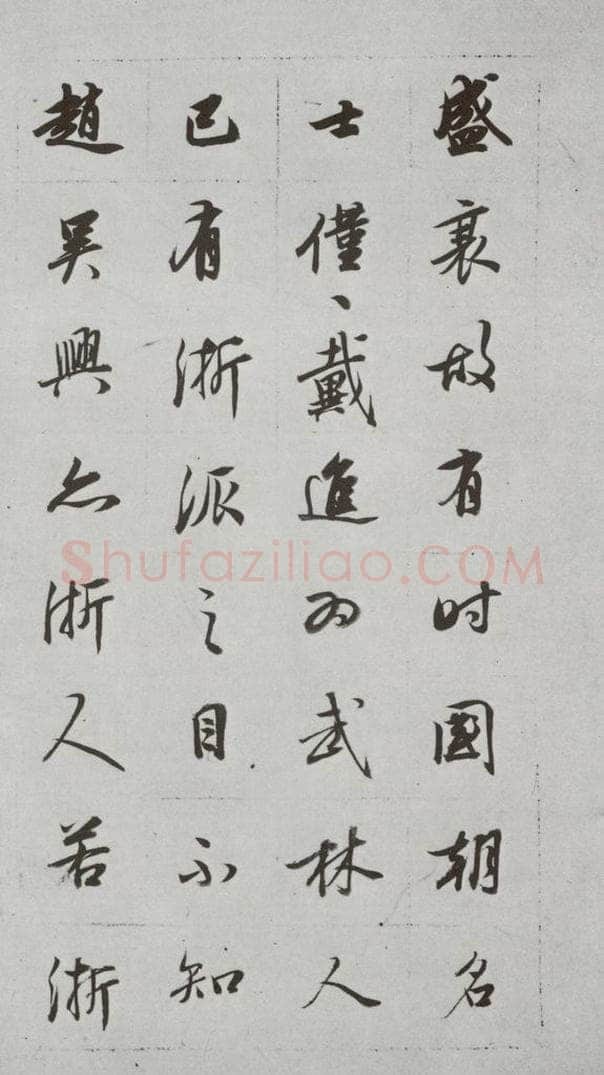 盛衰故有时國朝名
士僅、戴進為武林人
已有浙派之目不知
趙吳興亦浙人若浙
Shufaziliao.COM